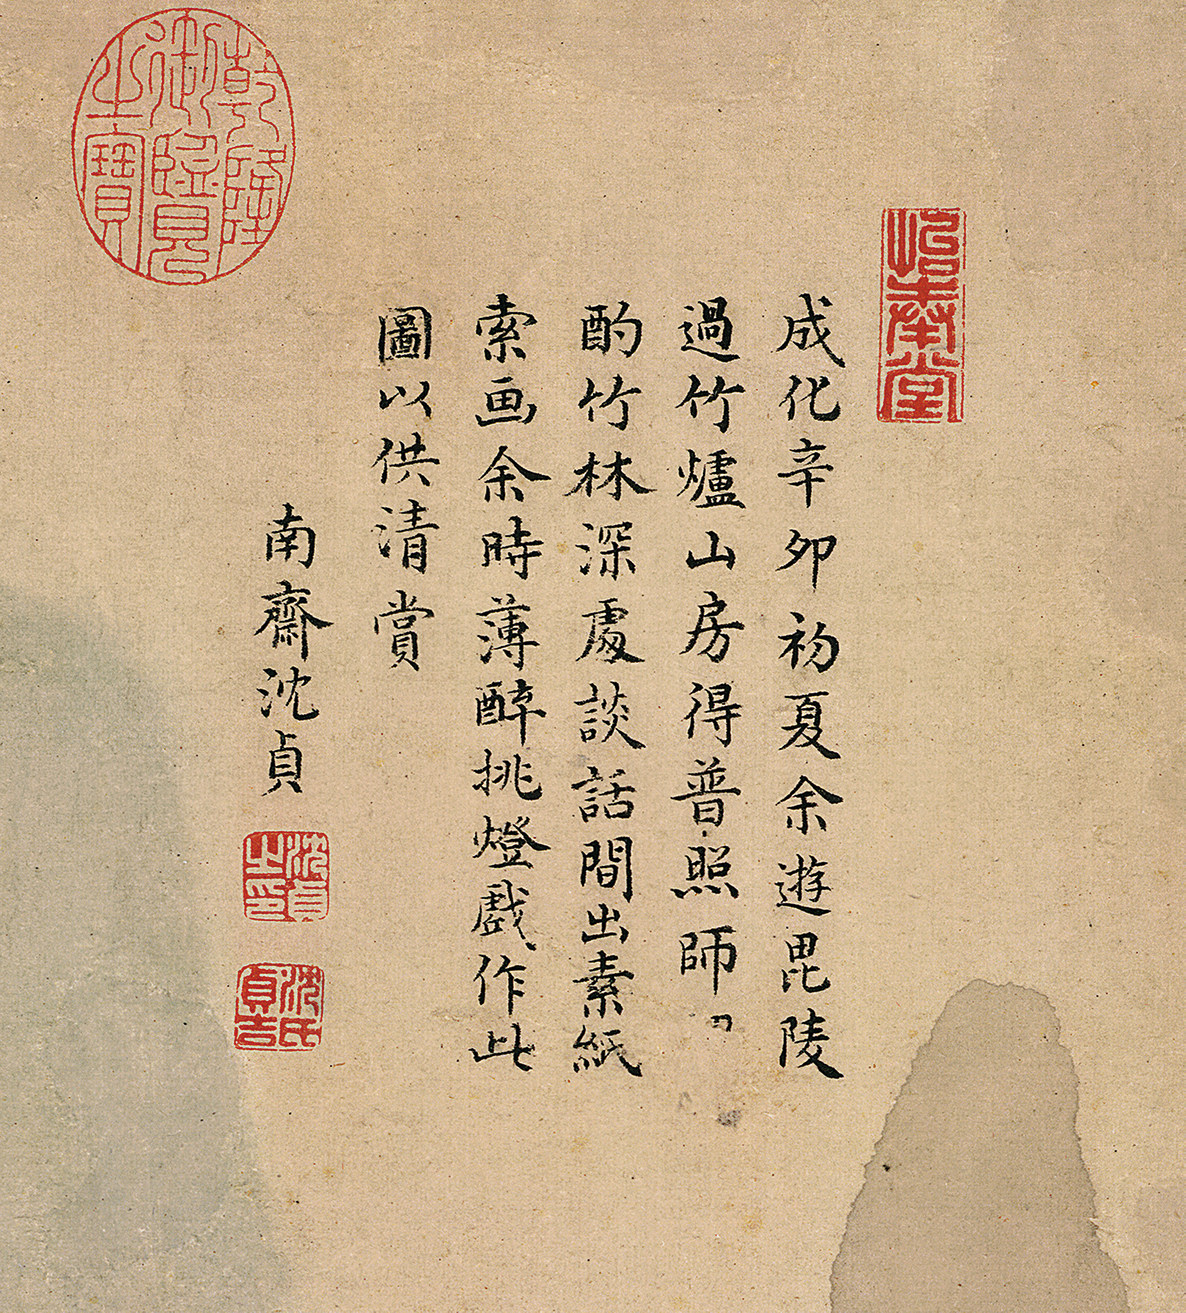 成化辛卯初夏余遊毘陵
過竹爐山房得普照師
酌竹林深處談話間出素紙
索画余時薄醉挑燈戲作此
圖以供清賞
南齋沈貞
乾隆御覽之寶
沈貞之印
沈氏貞吉